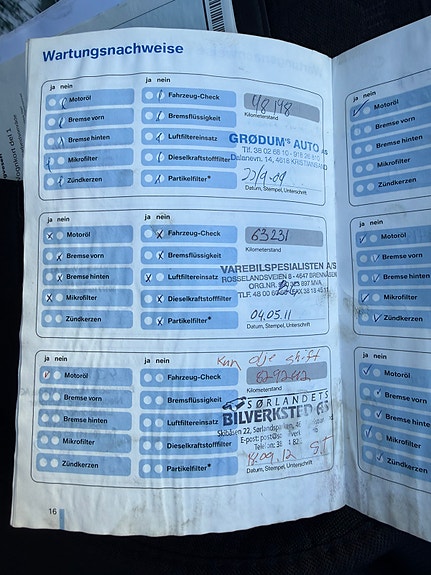 Wartungsnachweise
ja nein
ja nein
Motoröl
Fahrzeug-Check
48148
Bremse vorn
Bremsflüssigkeit
Kilometerstand
Bremse hinten
Luftfiltereinsatz
GRØDUM's AUTO AS
Tlf. 38 02 68 10 - 918 26 810
Mikrofilter
Dieselkraftstofffilter
Dalanevn. 14, 4618 KRISTIANSAND
Zündkerzen
Partikelfilter*
22/9-09
Datum, Stempel, Unterschrift
ja nein
ja nein
Motoröl
Fahrzeug-Check
63231
Bremse vorn
Bremsflüssigkeit
Kilometerstand
Bremse hinten
Luftfiltereinsatz
VAREBILSPESIALISTEN A/S
ROSSELANDSVEIEN 8 - 4647 BRENNÅSEN
ORG.NR. 897 MVA
Mikrofilter
Dieselkraftstofffilter
TLF. 48 00 FAX 38 18 45 11
Zündkerzen
Partikelfilter*
04.05.11
Datum, Stempel, Unterschrift
ja nein
ja nein
kun olje skift
Motoröl
Fahrzeug-Check
Bremse vorn
Bremsflüssigkeit
Kilometerstand
SØRLANDETS
Bremse hinten
Luftfiltereinsatz
BILVERKSTED AS
Skibåsen 22, Sørlandsparken,
Mikrofilter
Dieselkraftstofffilter
E-post:
Telefon: 38
Zündkerzen
Partikelfilter*
09.12 S.T
Datum, Stempel, Unterschrift
16
ja nein
Motoröl
Bremse vorn
Bremse hinten
Mikrofilter
Zündkerzen
ja nein
Motoröl
Bremse vorn
Bremse hinten
Mikrofilter
Zündkerzen
ja nein
Motoröl
Bremse vorn
Bremse hinten
Mikrofilter
Zündkerzen